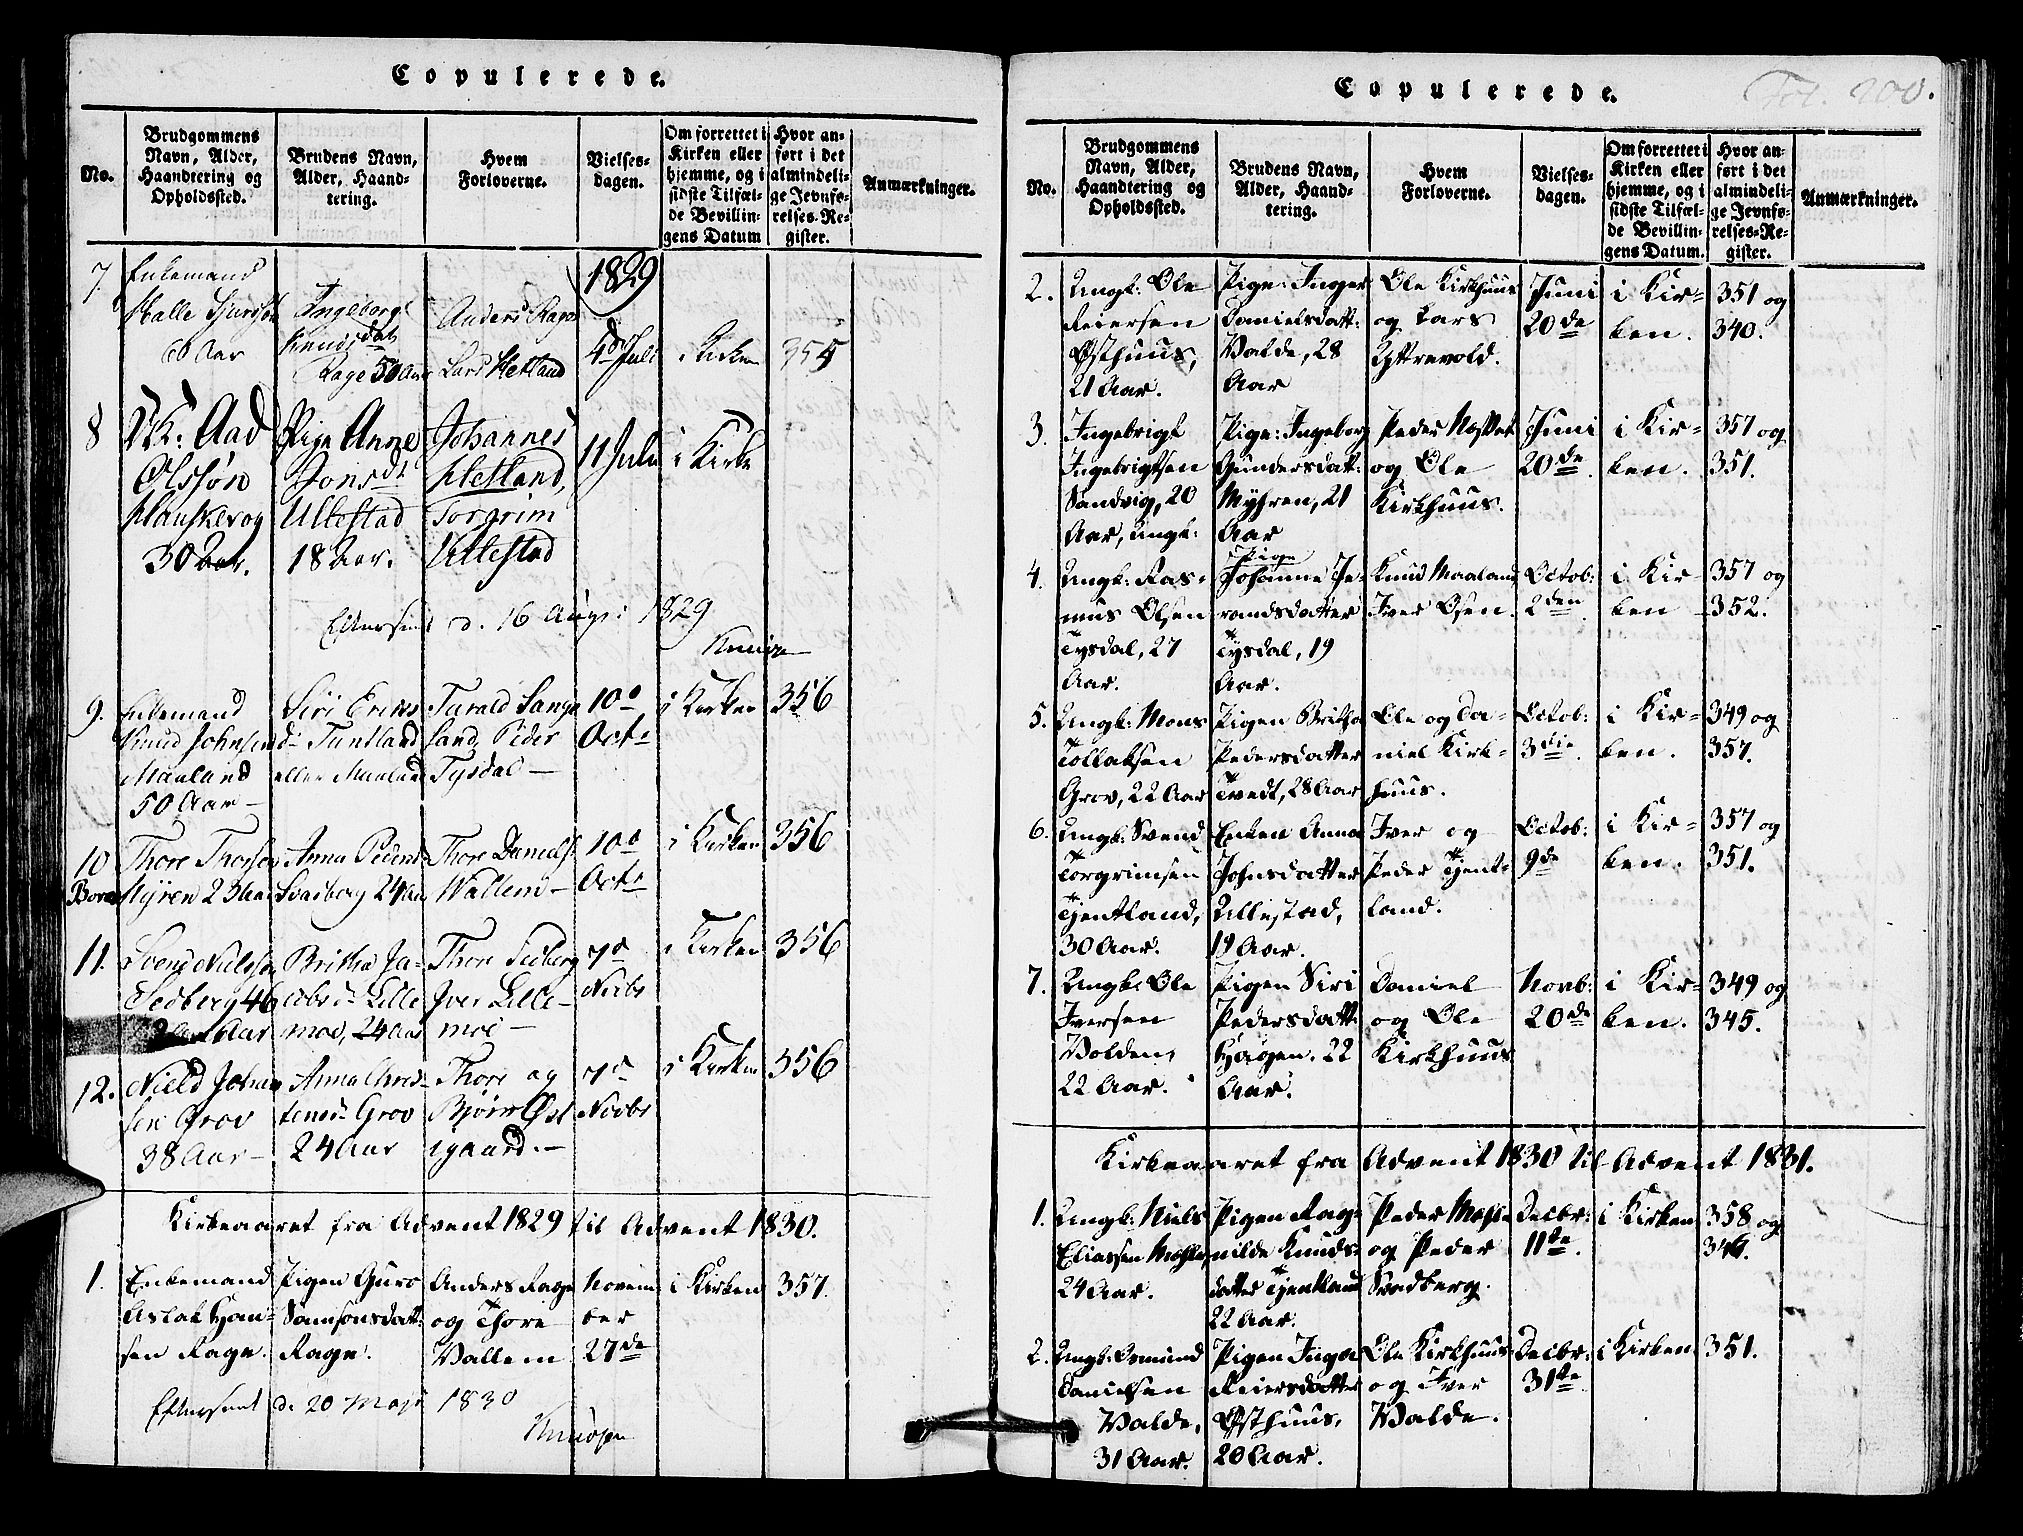 Copulerede.
No.
Brudgommens Navn, Alder, Haandtering og Opholdssted.
Brudens Navn, Alder, Haandtering.
Hvem Forloverne.
Vielsesdagen.
Om forrettet i Kirken eller hjemme, og i sidste Tilfælde Bevillingens Datum
Hvor anført i det almindelige Jevnførelses-Register.
Anmærkninger.
7. Enkemand
Ingeborg
Knudsdat
Rage 50 Aar
Anders Rage
Lars Hetland
1829
4de Juli
i Kirken
354
8
Aad
Olssøn
30 Aar.
Pige Anne
Jonsdt
Ullestad
18 Aar.
Johannes
Hetland,
Torgrim
Ullestad
11 Juli
i Kirke
Efterseet d. 16 Aug: 1829
9. Enkemand
Knud Johnsen
Maaland
50 Aar
Siri Eriks
d. Tuntland
eller Maaland
Peder
Tysdal
10d
Octr
i Kirken
356
10
Thore Thorsen
Myren 23 Aar
Anna Peders
Svadberg 24 Aar
Thore Daniels
Wallem
10d
Octr
i Kirken
356
11.
Svend Nielssøn
Sedberg 46
Aar
Britha Ja-
cobsd. Lille
moe, 24 Aar
Thore Sedberg
Iver Lille-
moe
7d
Novbr
i Kirken
356
12.
Niels Johan
sen Grov
38 Aar
Anna Chris-
tensd. Grov
24 Aar
Thore og
Bjørn Øst
igaard.
7d
Novbr
i Kirken
356
Kirkeaaret fra Advent 1829 til Advent 1830.
1.
Enkemand
Aslak Han-
sen Rage.
Pigen Guro
Samsonsdatt:
Rage.
Anders Rage
og Thore
Vallem
Novem
ber
27de
i Kirken
357.
Efterseet d. 20 Maji 1830
Knudsen
Copulerede.
Fol. 200.
No.
Brudgommens Navn, Alder, Haandtering og Opholdssted.
Brudens Navn, Alder, Haandtering.
Hvem Forloverne.
Vielsesdagen.
Om forrettet i Kirken eller hjemme, og i sidste Tilfælde Bevillingens Datum.
Hvor anført i det almindelige Jevnførelses-Register.
Anmærkninger.
2.
Ungk: Ole
Reiersen
Østhuus,
21 Aar.
Pige: Inger
Danielsdatt:
Valde, 28
Aar
Ole Kirkhuus
og Lars
Yttrevold.
Juni
20de
i Kir-
ken.
351 og
340.
3.
Ingebrigt
Ingebrigtsen
Sandvig, 20
Aar, Ungk:
Pige: Ingeborg
Gundersdatt:
Myhren, 21
Aar
Peder
og Ole
Kirkhuus.
Juni
20de
i Kir-
ken.
357 og
351.
4.
Ungk: Ras-
mus Olsen
Tysdal, 27
Aar.
Pige
Johanne Je-
romdsdatter
Tysdal, 19
Aar.
Knud Maaland
Iver Osen.
Octob:
2den
i Kir-
ken
357 og
352.
5.
Ungk: Mons
Tollaksen
Grov, 22 Aar
Pigen Britha
Pedersdatter
Tvedt, 28 Aar
Ole og Da-
niel Kirk-
huus.
Octob:
3die
i Kir-
ken.
349 og
357.
6.
Ungk: Svend
Torgrimsen
Tjentland,
30 Aar.
Enken Anna
Johnsdatter
Ullestad,
19 Aar.
Iver og
Peder Tjent-
land.
Octob:
9de
i Kir-
ken.
357 og
351.
7.
Ungk: Ole
Iversen
Volden,
22 Aar.
Pigen Siri
Pedersdatt:
Haagen. 22
Aar.
Daniel
og Ole
Kirkhuus
Novb:
20de
i Kir-
ken.
349 og
345.
Kirkeaaret fra Advent 1830 til Advent 1831.
1.
Ungk: Niels
Eliassen
24 Aar.
Pigen Rag-
nilde Knuds-
datter Tjentland
22 Aar.
Peder
og Peder
Svadberg.
Decbr:
11te
i Kirken
358 og
346.
2.
Ungk: Osmund
Danielsen
Valde,
31 Aar.
Pigen Inger
Reiersdatter
Østhuus,
20 Aar.
Ole Kirkhuus
og Iver
Valde.
Decbr:
31te
i Kirken
351.